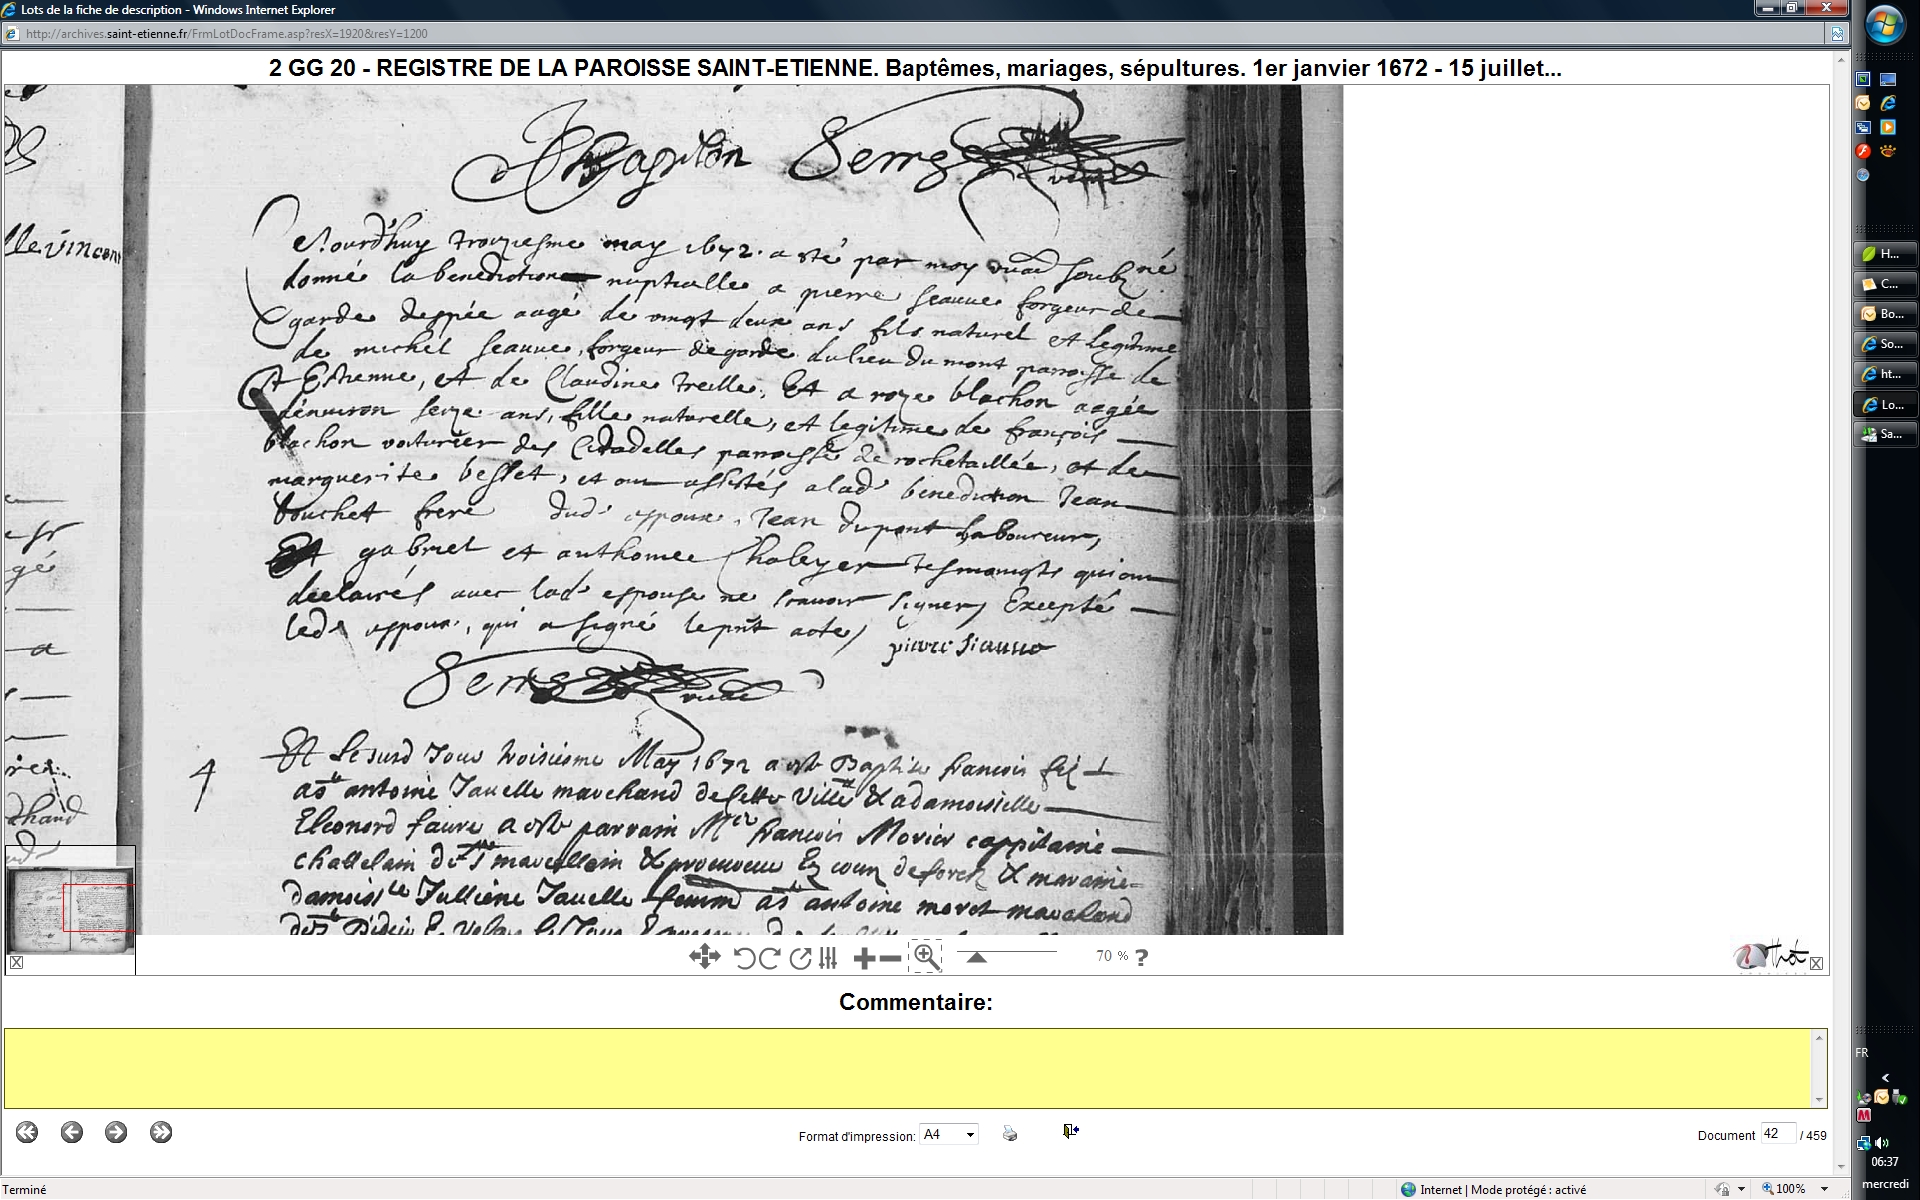 Lots de la fiche de description - Windows Internet Explorer
http://archives.saint-etienne.fr/FrmLotDocFrame.asp?resX=1920&resY=1200
2 GG 20 - REGISTRE DE LA PAROISSE SAINT-ETIENNE. Baptêmes, mariages, sépultures. 1er janvier 1672 - 15 juillet...
lle vincent
Serre
Cejourd'huy troiziesme may 1672. a esté par moy vicaire soubzné
donné la benediction nuptialle a pierre seauue forgeur de
garde despée aagé de vingt deux ans fils naturel et legitime
de michel seauue, forgeur de garde du lieu du mont parroisse de
St Estienne, et de Claudine treille, Et a roze blachon aagée
d'enuiron seize ans, fille naturelle, et legitime de françois
blachon voiturier des Citadelles parroisse de rochetaillée, et de
marguerite besset, et ont assistés a lad. benediction Jean
bouchet frere dud. espoux, Jean dupont laboureur,
Et gabriel et anthoine Chaleyer tesmoingts qui ont
declairés avec lad. espouse ne scavoir signer, Excepté
led. espoux, qui a signé le pnt acte,
pierre siauue
Serre
vicaire
Et Le susd Jour troisiesme May 1672 a esté Baptisé francois filz
a Sr antoine Jauelle marchand de ceste ville & a damoiselle
Eleonord faure a esté parrain Mr francois Morier cappitaine
chastelain de St marcellin & procureur Ez cour de forez & maraine
damoislle Jullienne Jauelle femme a Sr antoine moret marchand
4
gé
a
70 % ?
Commentaire:
Format d'impression: A4
Document 42 / 459
Terminé
Internet | Mode protégé : activé
100%
H...
C...
Bo...
So...
ht...
Lo...
Sa...
FR
06:37
mercredi